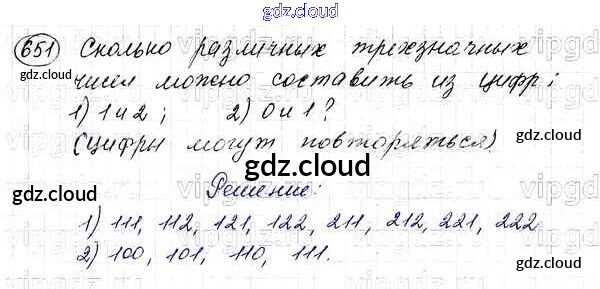 gdz.cloud
651 Сколько различных трехзначных
gdz.cloud
чисел можно составить из цифр:
1) 1 и 2; 2) 0 и 1?
gdz.cloud
(цифры могут повторяться).
gdz.cloud
gdz.cloud
gdz.cloud
Решение:
1) 111, 112, 121, 122, 211, 212, 221, 222
gdz.cloud
2) 100, 101, 110, 111.
gdz.cloud
gdz.cloud